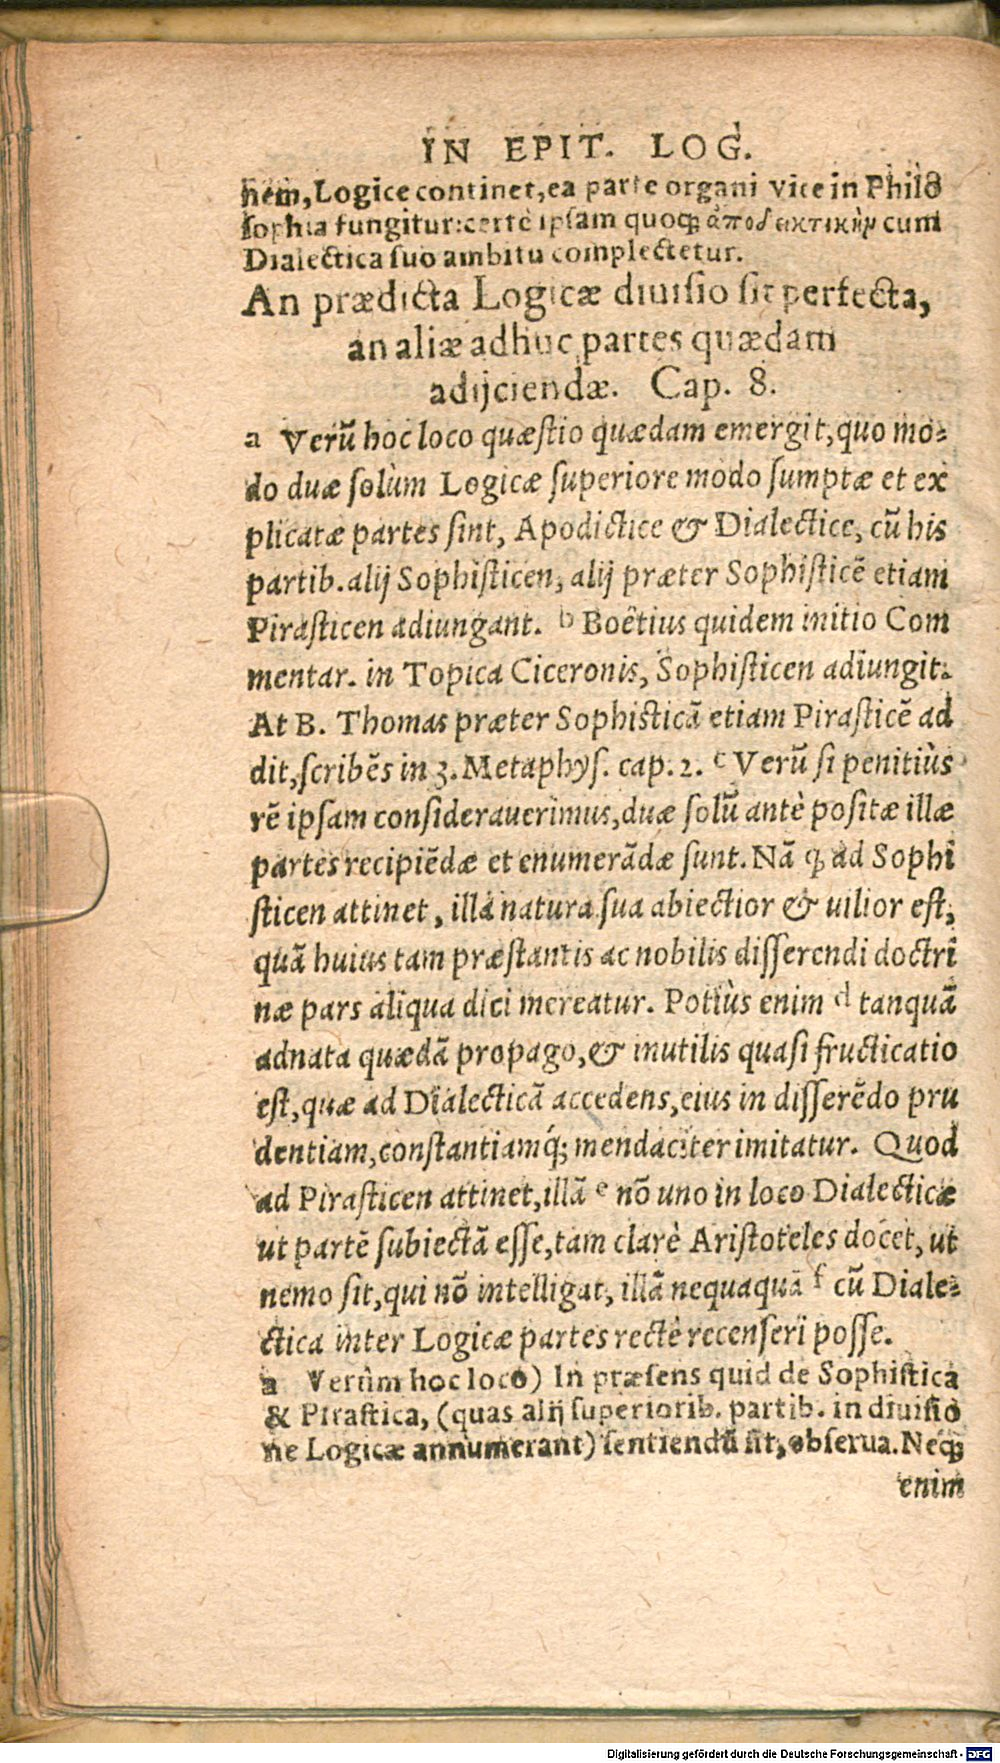 IN EPIT. LOG.
nem, Logice continet, ea parte organi vice in Philo
sophia fungitur: certè ipsam quoqꝫ ἀποδεικτικὴν cum
Dialectica suo ambitu complectetur.
An prædicta Logicæ diuisio sit perfecta,
an aliæ adhuc partes quædam
adijciendæ. Cap. 8.
a Verũ hoc loco quæstio quædam emergit, quo mo-
do duæ solùm Logicæ superiore modo sumptæ et ex
plicatæ partes sint, Apodictice & Dialectice, cũ his
partib. alij Sophisticen, alij præter Sophisticẽ etiam
Pirasticen adiungant. b Boêtius quidem initio Com
mentar. in Topica Ciceronis, Sophisticen adiungit.
At B. Thomas præter Sophisticã etiam Pirasticẽ ad
dit, scribẽs in 3. Metaphys. cap. 2. c Verũ si penitiùs
rẽ ipsam considerauerimus, duæ solũ antè positæ illæ
partes recipiẽdæ et enumerãdæ sunt. Nã ꝙ ad Sophi
sticen attinet, illa natura sua abiectior & uilior est,
quã huius tam præstantis ac nobilis disserendi doctri
næ pars aliqua dici mereatur. Potiùs enim d tanquã
adnata quædã propago, & inutilis quasi fructicatio
est, quæ ad Dialecticã accedens, eius in disserẽdo pru
dentiam, constantiamq́; mendaciter imitatur. Quod
ad Pirasticen attinet, illã e nõ uno in loco Dialecticæ
ut partẽ subiectã esse, tam clarè Aristoteles docet, ut
nemo sit, qui nõ intelligat, illã nequaquã f cũ Diale-
ctica inter Logicæ partes rectè recenseri posse.
a Verùm hoc loco) In præsens quid de Sophistica
& Pirastica, (quas alij superiorib. partib. in diuisio
ne Logicæ annumerant) sentiendũ sit, obserua. Neqꝫ
enim
Digitalisierung gefördert durch die Deutsche Forschungsgemeinschaft - DFG